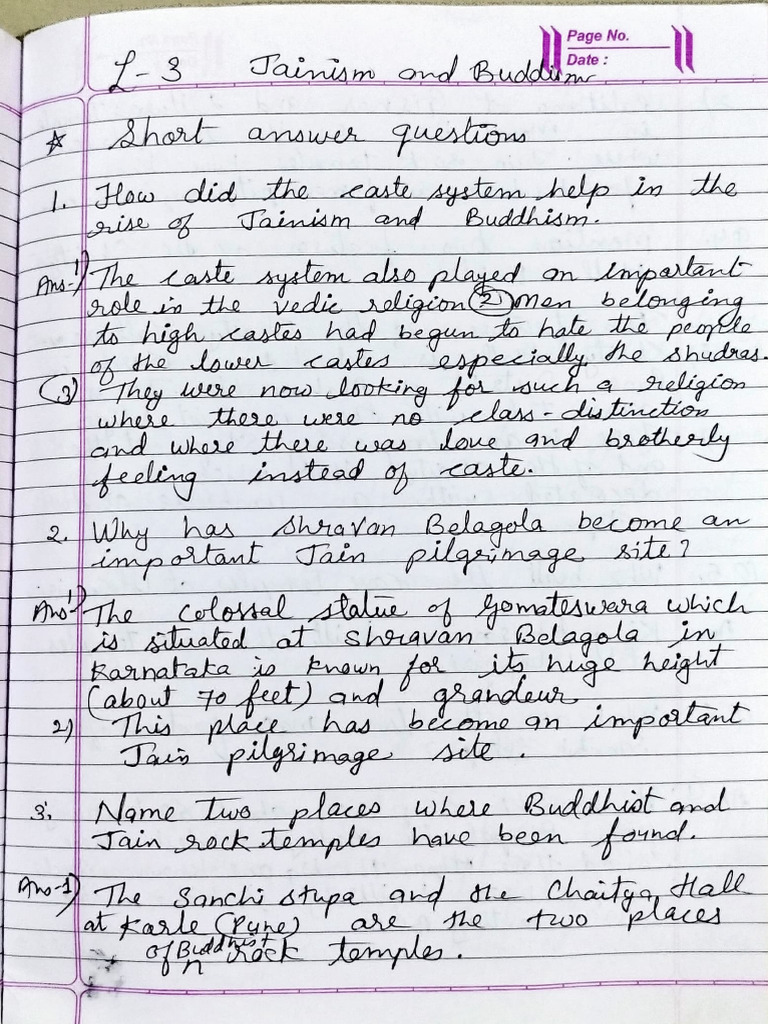 Page No.
Date :
L-3 Jainism and Buddism
☆ Short answer questions
1. How did the caste system help in the
rise of Jainism and Buddhism.
Ans-1) The caste system also played an important
role in the vedic religion (2) Men belonging
to high castes had begun to hate the people
of the lower castes especially the shudras.
(3) They were now looking for such a religion
where there were no class-distinction
and where there was love and brotherly
feeling instead of caste.
2. Why has Shravan Belagola become an
important Jain pilgrimage site?
Ans 1) The colossal statue of Gomateswara which
is situated at Shravan Belagola in
Karnataka is known for its huge height
(about 70 feet) and grandeur
2) This place has become an important
Jain pilgrimage site.
3. Name two places where Buddhist and
Jain rock temples have been found.
Ans-1) The Sanchi stupa and the Chaitya Hall
at Karle (Pune) are the two places
of Buddhist rock temples.